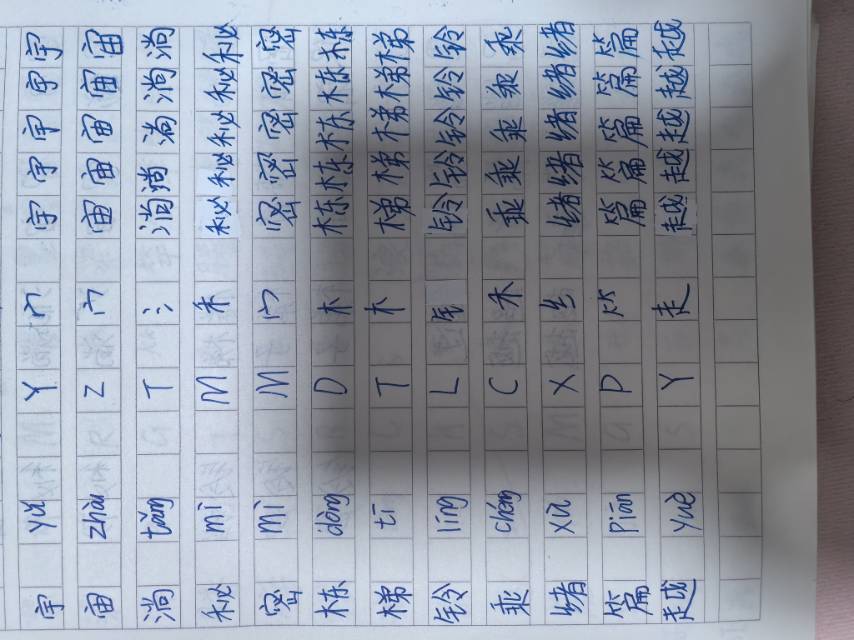 宇 yǔ Y 宀 宇 宇 宇 宇 宇
宙 zhòu Z 宀 宙 宙 宙 宙 宙
淌 tǎng T 氵 淌 淌 淌 淌 淌
秘 mì M 禾 秘 秘 秘 秘 秘
密 mì M 宀 密 密 密 密 密
栋 dòng D 木 栋 栋 栋 栋 栋
梯 tī T 木 梯 梯 梯 梯 梯
铃 líng L 钅 铃 铃 铃 铃 铃
乘 chéng C 禾 乘 乘 乘 乘 乘
绪 xù X 纟 绪 绪 绪 绪 绪
篇 piān P ⺮ 篇 篇 篇 篇 篇
越 yuè Y 走 越 越 越 越 越